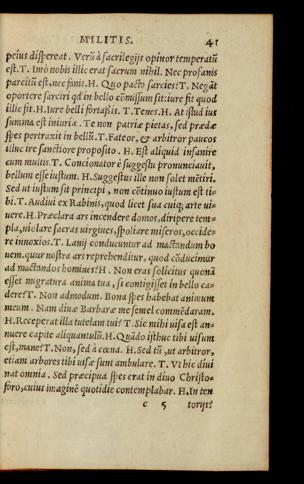 MILITIS. 41
peius dispereat. Verũ à sacrilegijs opinor temperatũ
est. T. Imò nobis illic erat sacrum nihil. Nec profanis
parcitũ est, nec sacris. H. Quo pacto sarcies? T. Negãt
oportere sarciri qd in bello cõmissum sit: iure fit quod
illic fit. H. Iure belli fortaßis. T. Tenes. H. At istud ius
summa est iniuria. Te non patriæ pietas, sed prædæ
spes pertraxit in bellũ. T. Fateor, & arbitror paucos
illuc ire sanctiore proposito. H. Est aliquid insanire
cum multis. T. Concionator è suggestu pronunciauit,
bellum esse iustum. H. Suggestus ille non solet mẽtiri.
Sed ut iustum sit principi, non cõtinuo iustum est ti-
bi. T. Audiui ex Rabinis, quod licet sua cuiq; arte ui-
uere. H. Præclara ars incendere domos, diripere tem-
pla, uiolare sacras uirgines, spoliare miseros, occide-
re innoxios. T. Lanij conducuntur ad mactandum bo
uem. quur nostra ars reprehenditur, quod cõducimur
ad mactandos homines? H. Non eras solicitus quonã
esset migratura anima tua, si contigisset in bello ca-
dere? T. Non admodum. Bona spes habebat animum
meum. Nam diuæ Barbaræ me semel commẽdaram.
H. Receperat illa tutelam tui? T. Sic mihi uisa est an-
nuere capite aliquantulũ. H. Quãdo isthuc tibi uisum
est, mane? T. Non, sed à cœna. H. Sed tũ, ut arbitror,
etiam arbores tibi uisæ sunt ambulare. T. Vt hic diui
nat omnia. Sed præcipua spes erat in diuo Christo-
foro, cuius imaginẽ quotidie contemplabar. H. In ten
c 5 torijs?